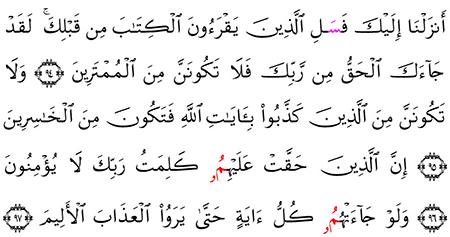 أَنزَلْنَا إِلَيْكَ فَسَلِ الَّذِينَ يَقْرَءُونَ الْكِتَٰبَ مِن قَبْلِكَ ۚ لَقَدْ
جَآءَكَ الْحَقُّ مِن رَّبِّكَ فَلَا تَكُونَنَّ مِنَ الْمُمْتَرِينَ ۝٩٤ وَلَا
تَكُونَنَّ مِنَ الَّذِينَ كَذَّبُواْ بِـَٔايَٰتِ اللَّهِ فَتَكُونَ مِنَ الْخَٰسِرِينَ
۝٩٥ إِنَّ الَّذِينَ حَقَّتْ عَلَيْهِمُۥ كَلِمَتُ رَبِّكَ لَا يُؤْمِنُونَ
۝٩٦ وَلَوْ جَآءَتْهُمُۥ كُلُّ ءَايَةٍ حَتَّىٰ يَرَوُاْ الْعَذَابَ الْأَلِيمَ ۝٩٧